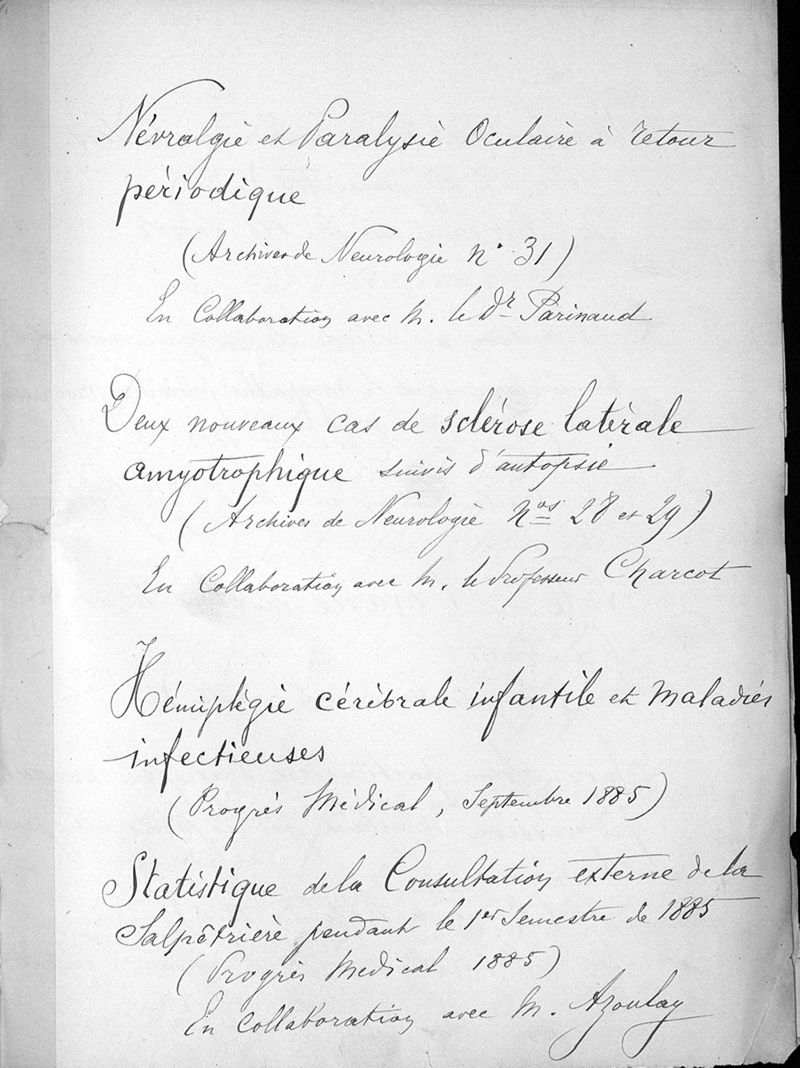 Névralgie et Paralysie Oculaire à retour
périodique
(Archives de Neurologie n° 31)
En Collaboration avec M. le Dr Parinaud
Deux nouveaux cas de sclérose latérale
amyotrophique suivis d'autopsie
(Archives de Neurologie Nos 28 et 29)
En Collaboration avec M. le Professeur Charcot
Hémiplégie cérébrale infantile et Maladies
infectieuses
(Progrès Médical, Septembre 1885)
Statistique de la Consultation externe de la
Salpêtrière pendant le 1er Semestre de 1885
(Progrès Medical 1885)
En collaboration avec M. Azoulay